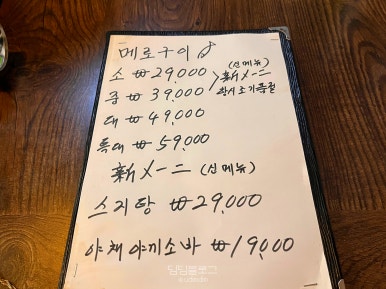 메로구이
소 ₩29,000
(신메뉴)
新メーニ
중 ₩39,000
대 ₩49,000
특대 ₩59,000
新メーニ (신메뉴)
스지탕 ₩29,000
야채 야끼소바 ₩19,000